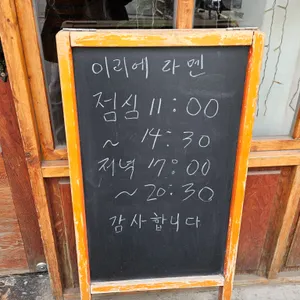 이리에 라멘
점심 11:00
~ 14:30
저녁 17:00
~ 20:30
감사합니다